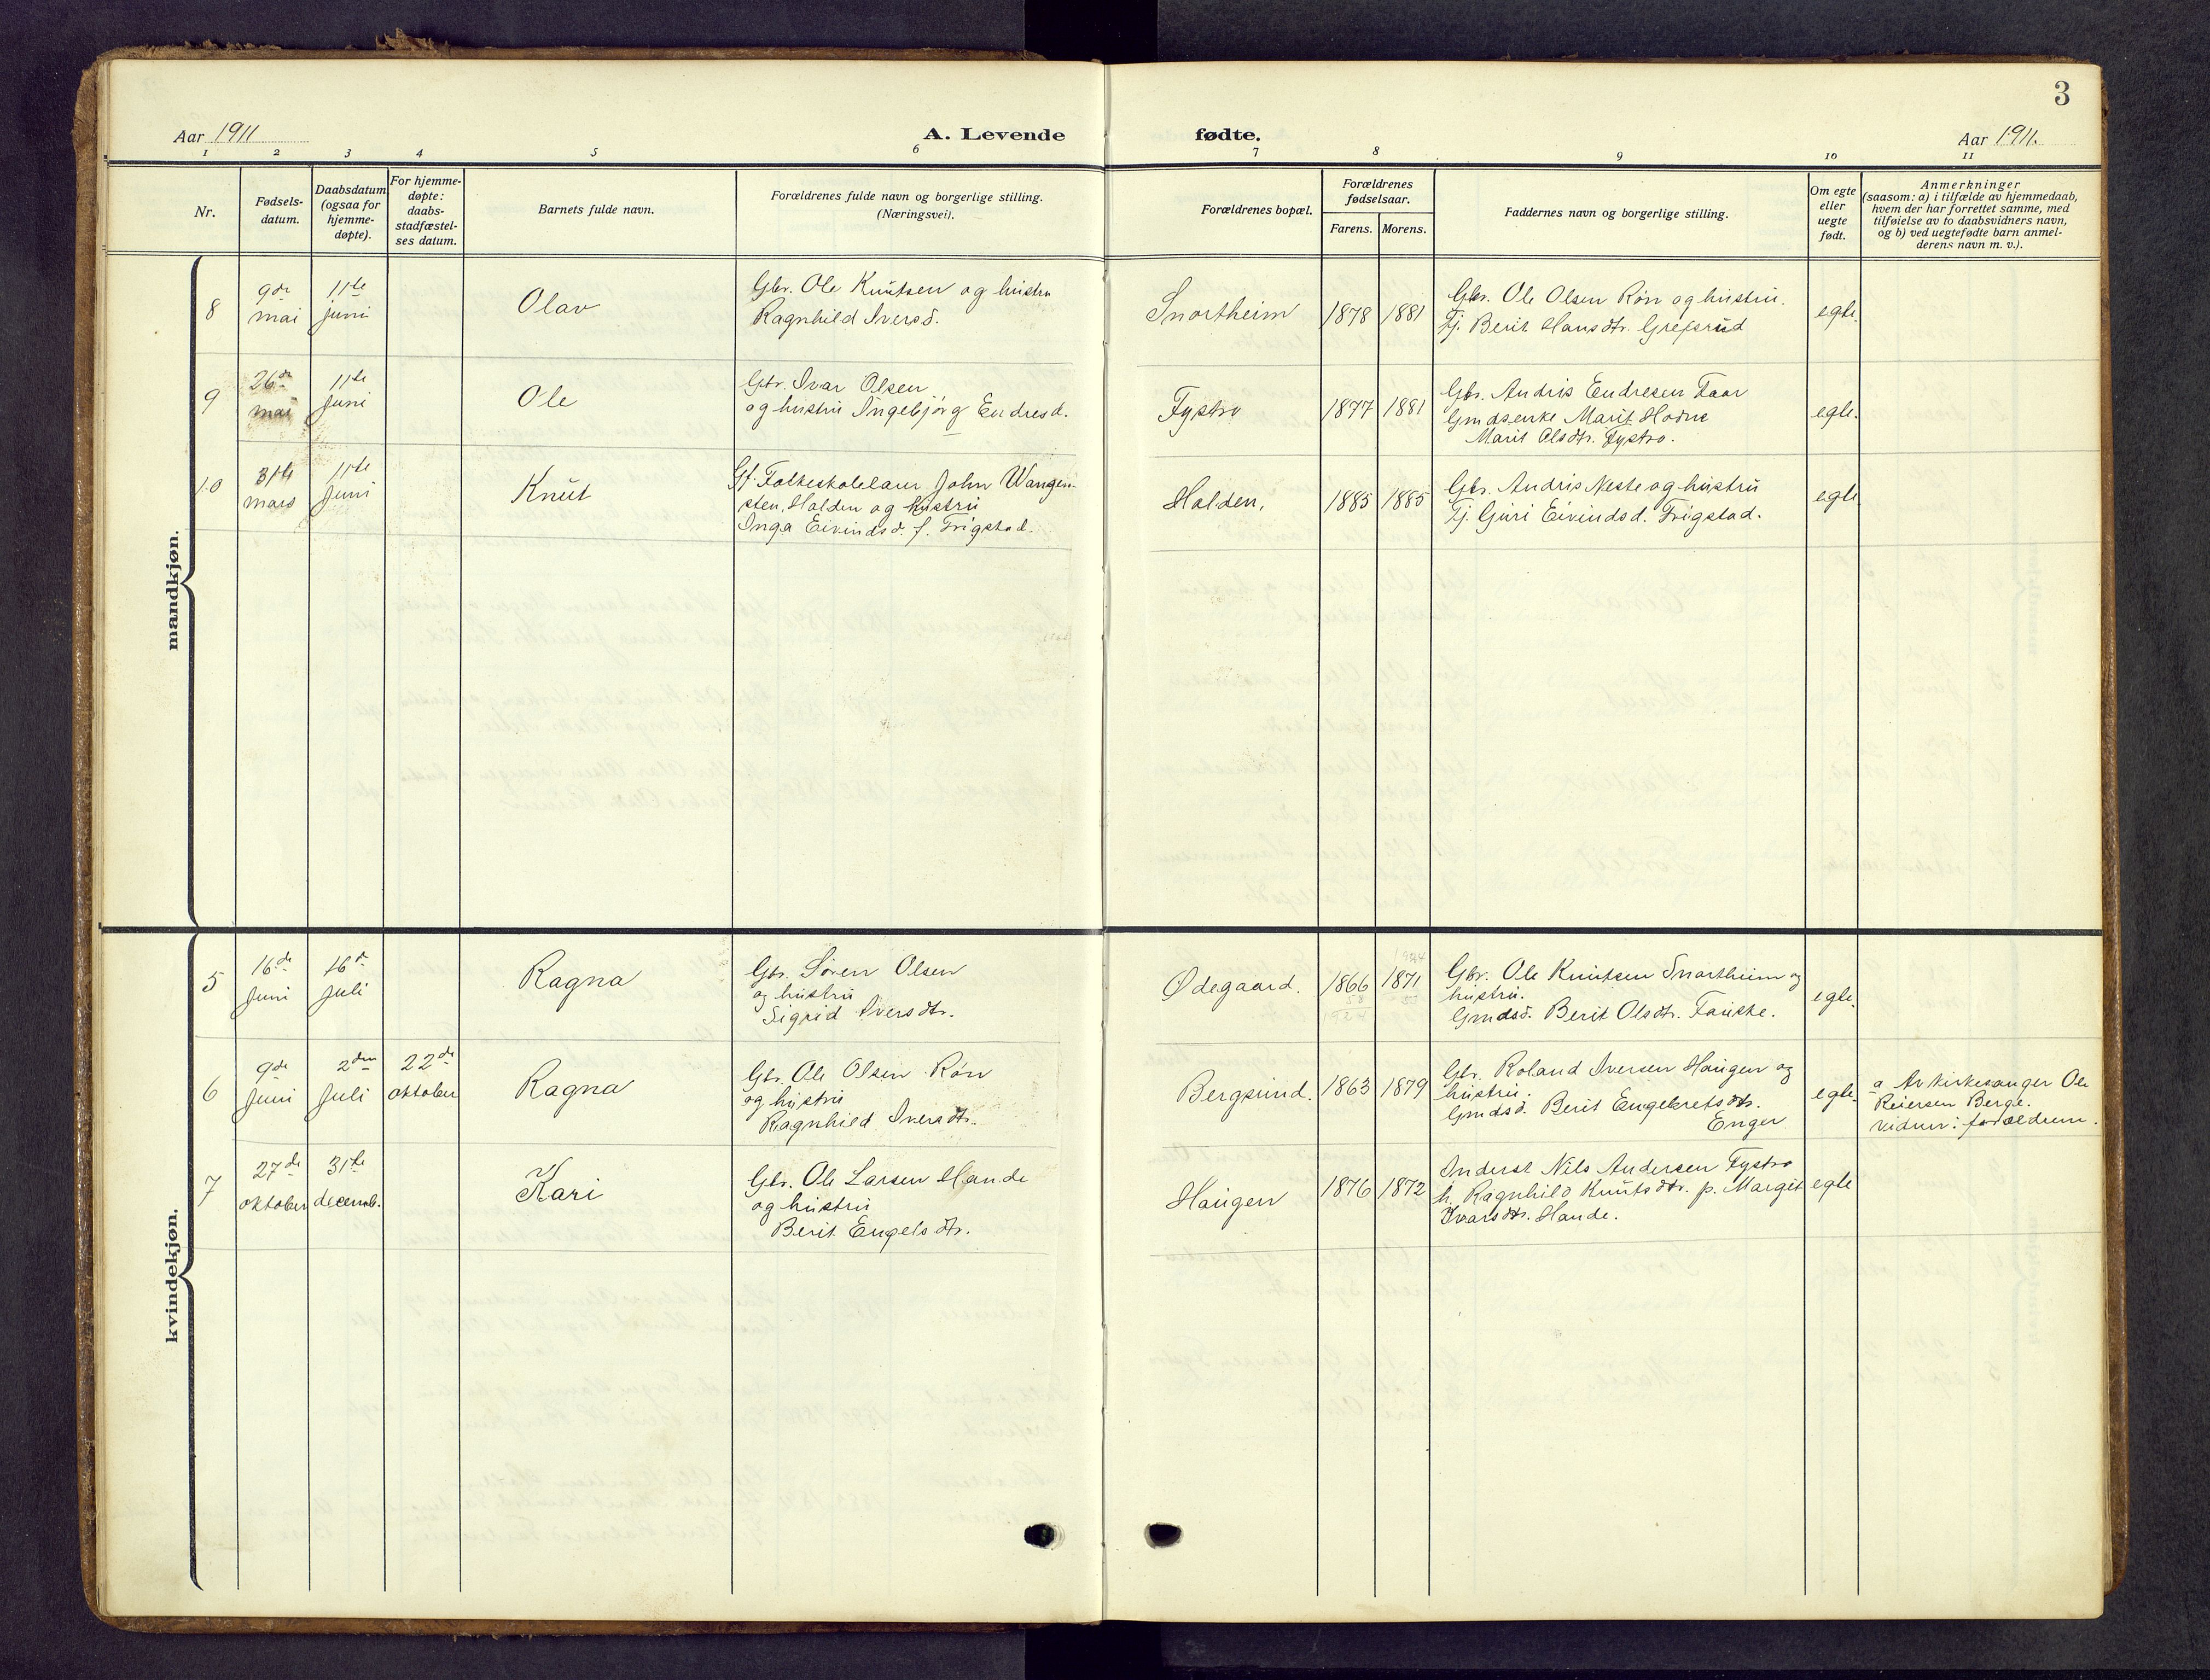 3
Aar 1911
A. Levende fødte.
Aar 1911.
1 2 3 4 5 6 7 8 9 10 11
Nr.
Fødsels-
datum.
Daabsdatum
(ogsaa for
hjemme-
døpte).
For hjemme-
døpte:
daabs-
stadfæstel-
ses datum.
Barnets fulde navn.
Forældrenes fulde navn og borgerlige stilling.
(Næringsvei).
Forældrenes bopæl.
Forældrenes
fødselsaar.
Farens. Morens.
Faddernes navn og borgerlige stilling.
Om egte
eller
uegte
født.
Anmerkninger
(saasom: a) i tilfælde av hjemmedaab,
hvem der har forrettet samme, med
tilføielse av to daabsvidners navn,
og b) ved uegtefødte barn anmel-
derens navn m. v.).
mandkjøn.
8
9de
mai
11te
juni
Olav
Gbr. Ole Knutsen og hustru
Ragnhild Iversd.
Snortheim
1878 1881
Gbr. Ole Olsen Røn og hustru.
Tj. Berit Hansdtr. Grefsrud
egte.
9
26de
mai
11te
juni
Ole
Gbr. Ivar Olsen
og hustru Ingebjörg Endresd.
Fystro
1877 1881
Gbr. Andris Endresen Faar
Gmdsenke Marit Hovne
Marit Olsdtr. Fystro.
egte.
10
31te
mars
11te
juni
Knut
Gf. Folkeskolelærer John Wangen-
sten, Holden og hustru
Inga Eivindsd. f. Trigstad.
Holden,
1885 1885
Gbr. Andris Neste og hustru
Tj. Guri Eivindsd. Trigstad.
egte
kvindekjøn.
5
16de
juni
16de
juli
Ragna
Gbr. Søren Olsen
og hustru
Sigrid Iversdtr.
Ødegaard.
1866 1871
Gbr. Ole Knutsen Snortheim og
hustru.
Gmdsd. Berit Olsdtr. Fauske.
egte.
6
9de
juni
2den
juli
22de
oktober
Ragna
Gbr. Ole Olsen Røn
og hustru
Ragnhild Iversdtr.
Bergsund.
1863 1879
Gbr. Roland Iversen Haugen og
hustru.
Gmdsd. Berit Engebretsdtr.
Enger
egte.
a Av kirkesanger Ole
Reiersen Berge.
Vidner: forældrene.
7
27de
oktober
31te
decemb.
Kari
Gbr. Ole Larsen Hande
og hustru
Berit Engelsdtr.
Haugen
1876 1872
Inderst Nils Andersen Fystro
h. Ragnhild Knutsdtr. p. Margit
Ivarsdtr. Hande.
egte